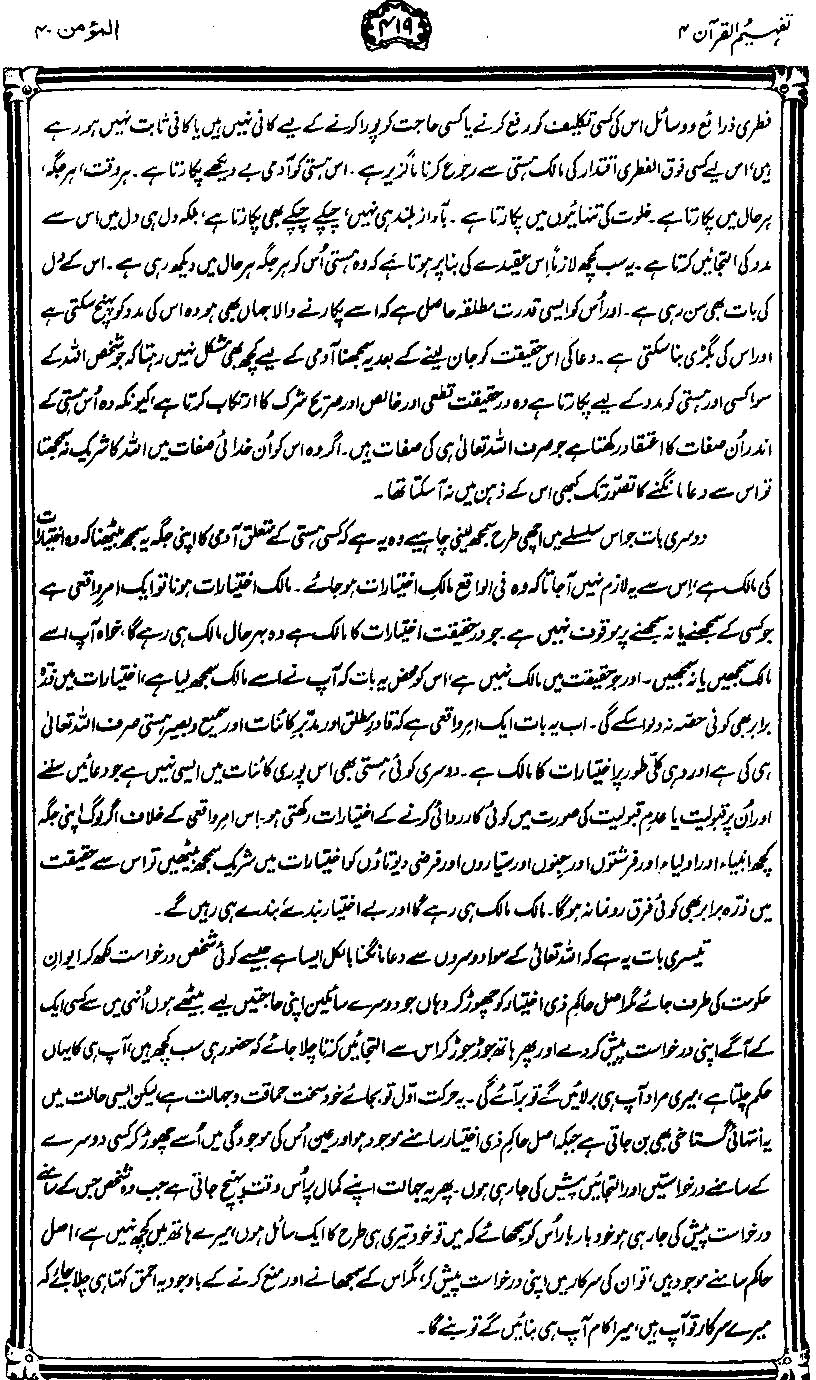 تفہیم القرآن ۴
۴۱۹
المؤمن ۴۰
فطری ذرائع و وسائل اس کی کسی تکلیف کو رفع کرنے یا کسی حاجت کو پورا کرنے کے لیے کافی نہیں ہیں یا کافی ثابت نہیں ہو رہے
ہیں، اس لیے کسی فوق الفطری اقتدار کی مالک ہستی سے رجوع کرنا ناگزیر ہے۔ اس ہستی کو آدمی بے دیکھے پکارتا ہے۔ ہر وقت، ہر جگہ،
ہر حال میں پکارتا ہے۔ خلوت کی تنہائیوں میں پکارتا ہے۔ بآواز بلند ہی نہیں، چپکے چپکے بھی پکارتا ہے، بلکہ دل ہی دل میں اس سے
مدد کی التجائیں کرتا ہے۔ یہ سب کچھ لازماً اِس عقیدے کی بنا پر ہوتا ہے کہ وہ ہستی اُس کو ہر جگہ ہر حال میں دیکھ رہی ہے۔ اس کے دل
کی بات بھی سن رہی ہے۔ اور اُس کو ایسی قدرت مطلقہ حاصل ہے کہ اسے پکارنے والا جہاں بھی ہو وہ اس کی مدد کو پہنچ سکتی ہے
اور اس کی بگڑی بنا سکتی ہے۔ دعا کی اس حقیقت کو جان لینے کے بعد یہ سمجھنا آدمی کے لیے کچھ بھی مشکل نہیں رہتا کہ جو شخص اللہ کے
سوا کسی اور ہستی کو مدد کے لیے پکارتا ہے وہ در حقیقت قطعی اور خالص اور صریح شرک کا ارتکاب کرتا ہے، کیونکہ وہ اُس ہستی کے
اندر اُن صفات کا اعتقاد رکھتا ہے جو صرف اللہ تعالیٰ ہی کی صفات ہیں۔ اگر وہ اس کو اُن خدائی صفات میں اللہ کا شریک نہ سمجھتا
تو اس سے دعا مانگنے کا تصوّر تک کبھی اس کے ذہن میں نہ آسکتا تھا۔
دوسری بات جو اس سلسلے میں اچھی طرح سمجھ لینی چاہیے وہ یہ ہے کہ کسی ہستی کے متعلق آدمی کا اپنی جگہ یہ سمجھ بیٹھنا کہ وہ اختیارات
کی مالک ہے، اِس سے یہ لازم نہیں آجاتا کہ وہ فی الواقع مالکِ اختیارات ہو جائے۔ مالک اختیارات ہونا تو ایک امرِ واقعی ہے
جو کسی کے سمجھنے یا نہ سمجھنے پر موقوف نہیں ہے۔ جو در حقیقت اختیارات کا مالک ہے وہ بہر حال مالک ہی رہے گا، خواہ آپ اسے
مالک سمجھیں یا نہ سمجھیں۔ اور جو حقیقت میں مالک نہیں ہے، اس کو محض یہ بات کہ آپ نے اسے مالک سمجھ لیا ہے، اختیارات میں ذرّہ
برابر بھی کوئی حصّہ نہ دلوا سکے گی۔ اب یہ بات ایک امر واقعی ہے کہ قادرِ مطلق اور مدبّرِ کائنات اور سمیع و بصیر ہستی صرف اللہ تعالیٰ
ہی کی ہے اور وہی کلّی طور پر اختیارات کا مالک ہے۔ دوسری کوئی ہستی بھی اس پوری کائنات میں ایسی نہیں ہے جو دعائیں سننے
اور اُن پر قبولیت یا عدمِ قبولیت کی صورت میں کوئی کارروائی کرنے کے اختیارات رکھتی ہو۔ اِس امرِ واقعی کے خلاف اگر لوگ اپنی جگہ
کچھ انبیاء اور اولیاء اور فرشتوں اور جنوں اور سیّاروں اور فرضی دیوتاؤں کو اختیارات میں شریک سمجھ بیٹھیں تو اس سے حقیقت
میں ذرّہ برابر بھی کوئی فرق رونما نہ ہوگا۔ مالک مالک ہی رہے گا اور بے اختیار بندے، بندے ہی رہیں گے۔
تیسری بات یہ ہے کہ اللہ تعالیٰ کے سوا دوسروں سے دعا مانگنا بالکل ایسا ہے جیسے کوئی شخص درخواست لکھ کر ایوانِ
حکومت کی طرف جائے مگر اصل حاکمِ ذی اختیار کو چھوڑ کر وہاں جو دوسرے سائلین اپنی حاجتیں لیے بیٹھے ہوں اُنہی میں سے کسی ایک
کے آگے اپنی درخواست پیش کر دے اور پھر ہاتھ جوڑ جوڑ کر اس سے التجائیں کرتا چلا جائے کہ حضور ہی سب کچھ ہیں، آپ ہی کا یہاں
حکم چلتا ہے، میری مراد آپ ہی بر لائیں گے تو بر آئے گی۔ یہ حرکت اول تو بجائے خود سخت حماقت و جہالت ہے، لیکن ایسی حالت میں
یہ انتہائی گستاخی بھی بن جاتی ہے جبکہ اصل حاکمِ ذی اختیار سامنے موجود ہو اور عین اُس کی موجودگی میں اُسے چھوڑ کر کسی دوسرے
کے سامنے درخواستیں اور التجائیں پیش کی جا رہی ہوں۔ پھر یہ جہالت اپنے کمال پر اُس وقت پہنچ جاتی ہے جب وہ شخص جس کے سامنے
درخواست پیش کی جا رہی ہو خود بار بار اُس کو سمجھائے کہ میں تو خود تیری ہی طرح کا ایک سائل ہوں، میرے ہاتھ میں کچھ نہیں ہے، اصل
حاکم سامنے موجود ہیں، تو ان کی سرکار میں اپنی درخواست پیش کر، مگر اس کے سمجھانے اور منع کرنے کے باوجود یہ احمق کہتا ہی چلا جائے کہ
میرے سرکار تو آپ ہیں، میرا کام آپ ہی بنائیں گے تو بنے گا۔